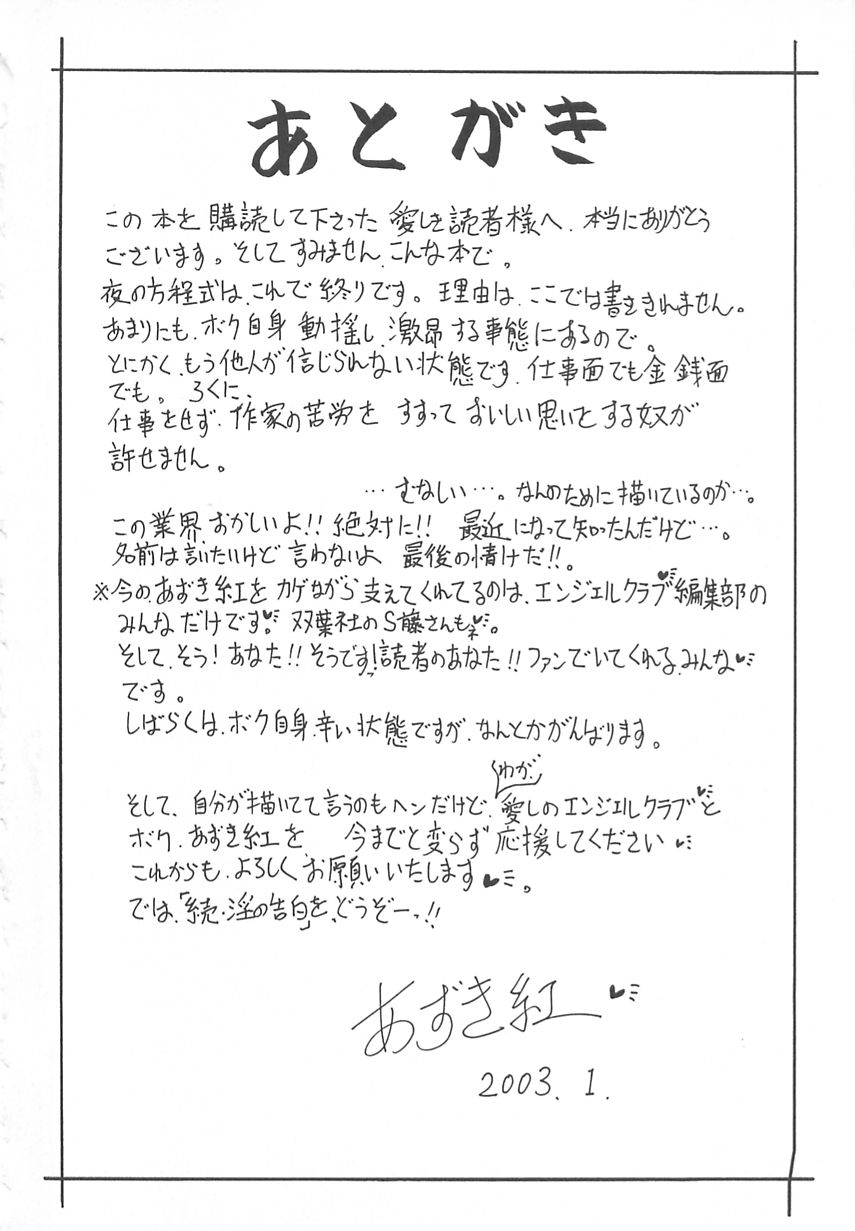 あとがき
この本を購読して下さった愛しき読者様へ、本当にありがとう
ございます。そしてすみません、こんな本で。
夜の方程式は、これで終りです。理由は、ここでは書ききれません。
あまりにも、ボク自身動揺し、激昂する事態にあるので。
とにかく、もう他人が信じられない状態です、仕事面でも金銭面
でも。ろくに、
仕事をせず、作家の苦労をすすっておいしい思いをする奴が
許せません。
…むなしい…。なんのために描いているのか…。
この業界、おかしいよ!!絶対に!!最近になって知ったんだけど…。
名前は言いたいけど言わないよ 最後の情けだ!!。
※今の、あずき紅をカゲながら支えてくれてるのは、エンジェルクラブ♥編集部の
みんなだけです♥。双葉社のS藤さんも♥。
そして、そう!あなた!!そうです!読者のあなた!!ファンでいてくれる、みんな♥
です。
しばらくは、ボク自身、辛い状態ですが、なんとかがんばります。
わが、
そして、自分が描いてて言うのもヘンだけど、愛しのエンジェルクラブ♥と
ボク、あずき紅を、今までと変らず応援してください♥
これからも、よろしくお願いいたします♥。
では、「続・淫の告白」を、どうぞーっ!!
あずき紅♥
2003.1.